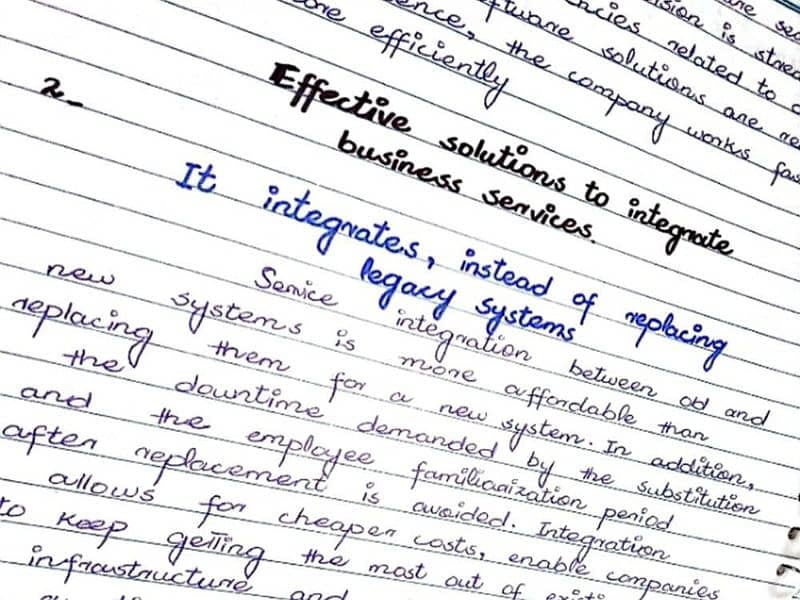 sion is stored
ence, the ncies related to
tware solutions are re
efficiently the company works fas
2-
Effective solutions to integrate
business services.
It integrates, instead of replacing
legacy systems
Service integration between old and
new systems is more affordable than
replacing them for a new system. In addition,
the downtime demanded by the substitution
and the employee familiarization period
after replacement is avoided. Integration
allows for cheaper costs, enable companies
to keep getting the most out of
infraustructure and